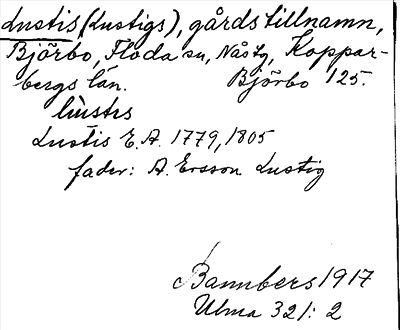 Lustis (Lustigs), gårdstillnamn,
Björbo, Floda sn, Nås tg, Koppar-
bergs län. Björbo 125.
lùstıs
Lustis E. A. 1779, 1805
fader: A. Ersson Lustig
Bannbers 1917
Ulma 321: 2